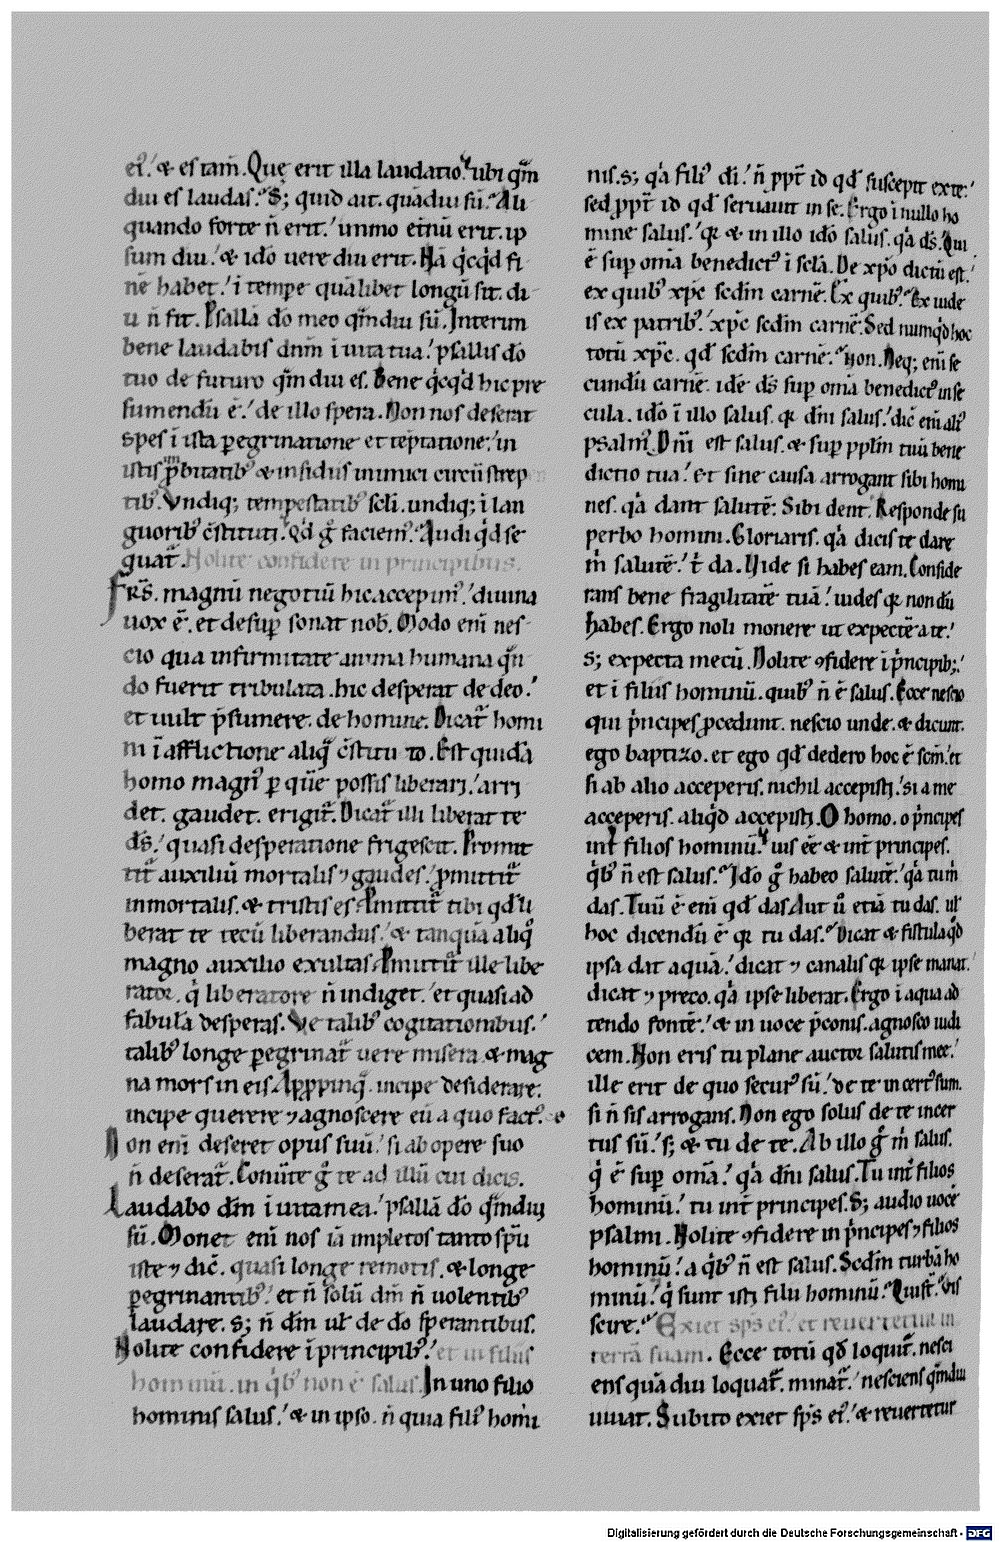 ei᷒.' & es tam̄. Quę erit illa laudatio.' ubi qm̄
diu es laudas.' S; quid ait. quādiu sū.' Ali
quando forte n̄ erit.' immo etnū erit. ip
sum diu.' & ido uere diu erit. Nā q̇cq̇d fi
nē habet.' ī tempe quālibet longū sit. di
u n̄ fit. Psallā do meo qm̄diu sū. Interim
bene laudabis dnm̄ ī uita tua.' psallis do
tuo de futuro qm̄ diu es. Bene q̇cq̇d hic pre
sumendū ē.' de illo spera. Non nos deserat
spes ī ista pegrinatione et teptatione.' in
istis p̄bitatib᷒ & insidiis inimici circūstrep
tib᷒. Vndiq; tempestatib᷒ scl̄i. undiq; ī lan
guorib᷒ c̄stituti. Qd g̊ faciem᷒.' Audi q̇d se
quat᷑. Nolite confidere in principibus.
FRS̄. magnū negotiū hic accepim᷒.' diuina
uox ē. et desup̱ sonat nob̄. Modo enī nes
cio qua infirmitate anima humana qn̄
do fuerit tribulata. hic desperat de deo.'
et uult p̄sumere. de homine. Dicat᷑ homi
ni ī afflictione aliq̄ c̄stituto. Est quidā
homo magn᷒ p̱ quē possis liberari.' arri
det. gaudet. erigit᷑. Dicat᷑ illi liberat te
ds̄.' quasi desperatione frigescit. Promit
tit᷑ auxiliū mortalis ⁊ gaudes.' p̄mittit᷑
inmortalis. & tristis es. Pmittit᷑ tibi qd̄ li
berat te tecū liberandus.' & tanquā aliq̊
magno auxilio exultas. Pmittit᷑ ille libe
rator. q̇ liberatore n̄ indiget.' et quasi ad
fabulā desperas. Ve talib᷒ cogitationibus.'
talib᷒ longe pegrinat᷑ uere misera & mag
na mors in eis. Appinq̄. incipe desiderare.
incipe querere ⁊ agnoscere eū a quo fact᷒. es
Non enī deseret opus suū.' si ab opere suo
n̄ deserat᷑. Conūte g̊ te ad illū cui dicis.
Laudabo dm̄ ī uita mea.' psallā do qm̄diu
sū. Monet enī nos iā impletos tanto spū
iste ⁊ dic̄. quasi longe remotis. & longe
pegrinantib᷒.' et n̄ solū dm̄ n̄ uolentib᷒
laudare. s; n̄ dm̄ ul̄ de do sperantibus.
Nolite confidere ī principib᷒.' et in filiis
hominū. in q̇b᷒ non ē salus. In uno filio
hominis salus.' & in ipso. n̄ quia fili᷒ homi
nis. s; q̇a fili᷒ di.' n̄ ppt̄ id qd̄ suscepit ex te.'
sed ppt̄ id qd̄ seruauit in se. Ergo ī nullo ho
mine salus.' qr & in illo ido salus. q̇a ds̄. Qui
ē sup̱ omīa benedict᷒ ī scl̄a. De xp̄o dictū est.'
ex quib᷒ xp̄c scdm̄ carnē. Ex quib᷒.' Ex uide
is ex patrib᷒.' xp̄c scdm̄ carnē. Sed numq̇d hoc
totū xp̄c. qd̄ scdm̄ carnē.' Non. Neq; enī se
cundū carnē. idē ds̄ sup̱ omīa benedict᷒ in se
cula. ido ī illo salus. qr dnī salus.' dic̄ enī ali᷒
psalm᷒. Dnī est salus. & sup̱ pplm̄ tuū bene
dictio tua.' Et sine causa arrogant sibi homi
nes. q̇a dant salutē. Sibi dent. Responde su
perbo homini. Gloriaris. q̇a dicis te dare
m̄ salutē.' t̄ da. Uide si habes eam. Conside
rans bene fragilitatē tuā.' uides qr nondū
habes. Ergo noli monere ut expectē a te.'
S; expecta mecū. Nolite ꝯfidere ī p̄ncipib;.'
et ī filiis hominū. quib᷒ n̄ ē salus. Ecce nescio
qui p̄ncipes pcedunt. nescio unde. & dicunt.
ego baptizo. et ego qd̄ dedero hoc ē scm̄.' et
si ab alio acceperis. nichil accepisti.' si a me
acceperis. aliq̇d accepisti. O homo. o p̄ncipes
int̄ filios hominū.' uis eē & int̄ principes.
q̇b᷒ n̄ est salus.' Ido g̊ habeo salutē.' q̇a tu m̄
das. Tuū ē enī qd̄ das. Aut ū etiā tu das. ul̄
hoc dicendū ē qr tu das.' Dicat & fistula qd̄
ipsa dat aquā.' dicat ⁊ canalis qr ipse manat.'
dicat ⁊ preco. q̇a ipse liberat. Ergo ī aqua ad
tendo fontē.' & in uoce p̄conis. agnosco iudi
cem. Non eris tu plane auctor salutis meę.'
ille erit de quo secur᷒ sū.' de te incert᷒ sum.
si n̄ sis arrogans. Non ego solus de te incer
tus sū.' s; & tu de te. Ab illo g̊ m̄ salus.
q̇ ē sup̱ omīa.' q̇a dnī salus. Tu int̄ filios
hominū.' tu int̄ principes. S; audio uocē
psalmi. Nolite ꝯfidere in p̄ncipes ⁊ filios
hominū.' a q̇b᷒ n̄ est salus. Scdm̄ turbā ho
minū.' q̇ sunt isti filii hominū.' Qui st̄. Vis
scire.' Exiet sps̄ ei᷒. et reuertetur in
terrā suam. Ecce totū qd̄ loquit᷑. nesci
ens quādiu loquat᷑. minat᷑.' nesciens qm̄diu
uiuat. Subito exiet sps̄ ei᷒.' & reuertetur
Digitalisierung gefördert durch die Deutsche Forschungsgemeinschaft - DFG